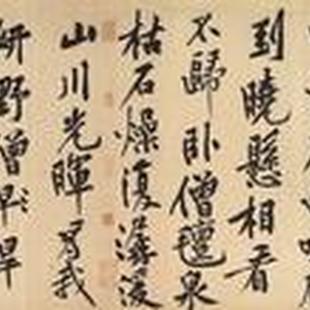 到曉懸相看
不歸臥僧氊泉
枯石燥復潺湲
山川光暉為我
妍野僧早旱